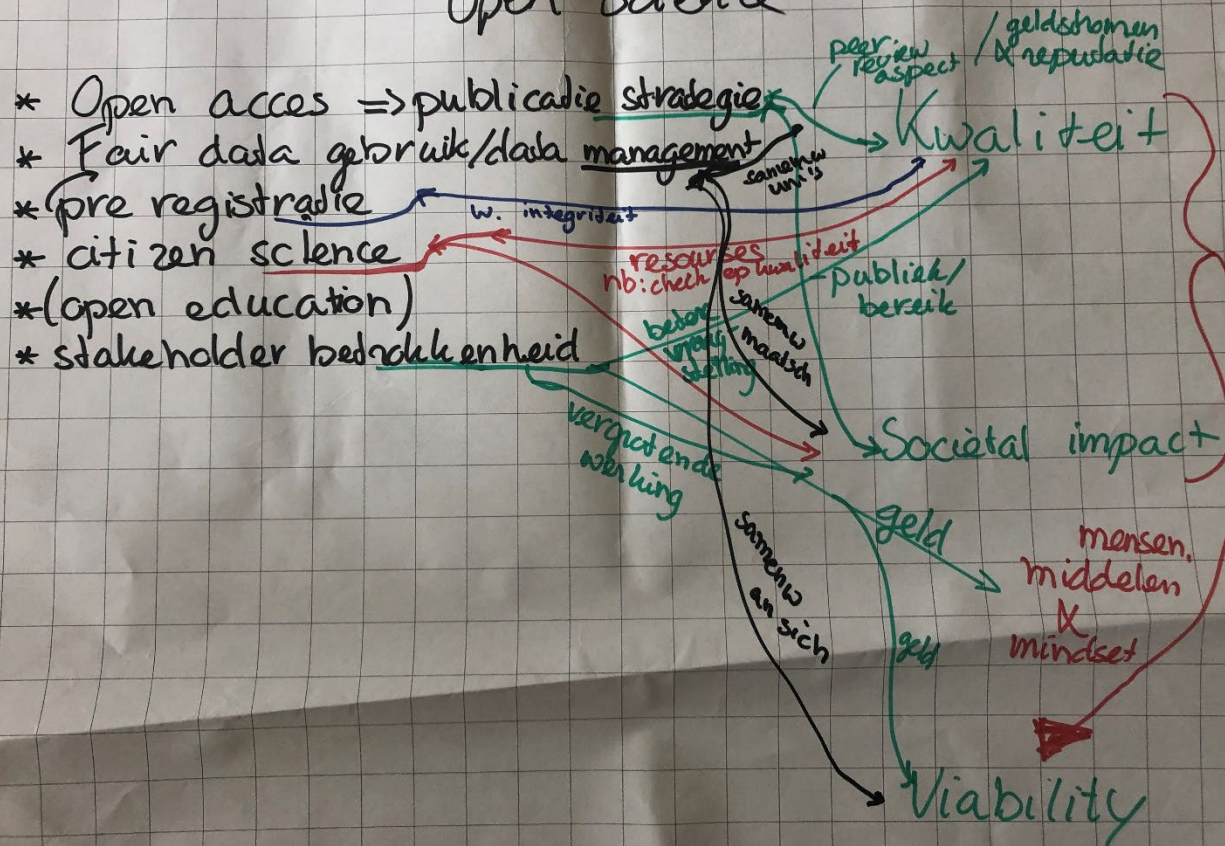 Open Science
* Open acces => publicatie strategie
* Fair data gebruik/data management
* (pre registratie
* citizen science
* (open education)
* stakeholder betrokkenheid
peer review
review
aspect
/ geldstromen
& reputatie
Kwaliteit
samenw
uni's
w. integriteit
resourses
nb: check op kwaliteit
publiek/
bereik
betere
vraag
stelling
samenw
maatsch
vergrotende
werking
Societal impact
geld
samenw
an sich
geld
mensen,
middelen
&
mindset
Viability